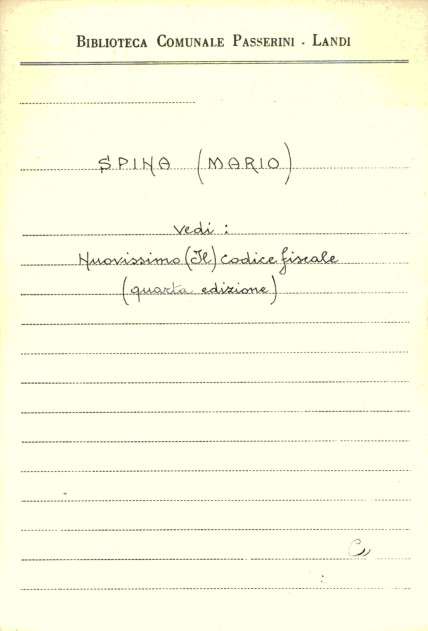 BIBLIOTECA COMUNALE PASSERINI - LANDI
SPINA (MARIO)
vedi :
Nuovissimo (Il) Codice fiscale
(quarta edizione)